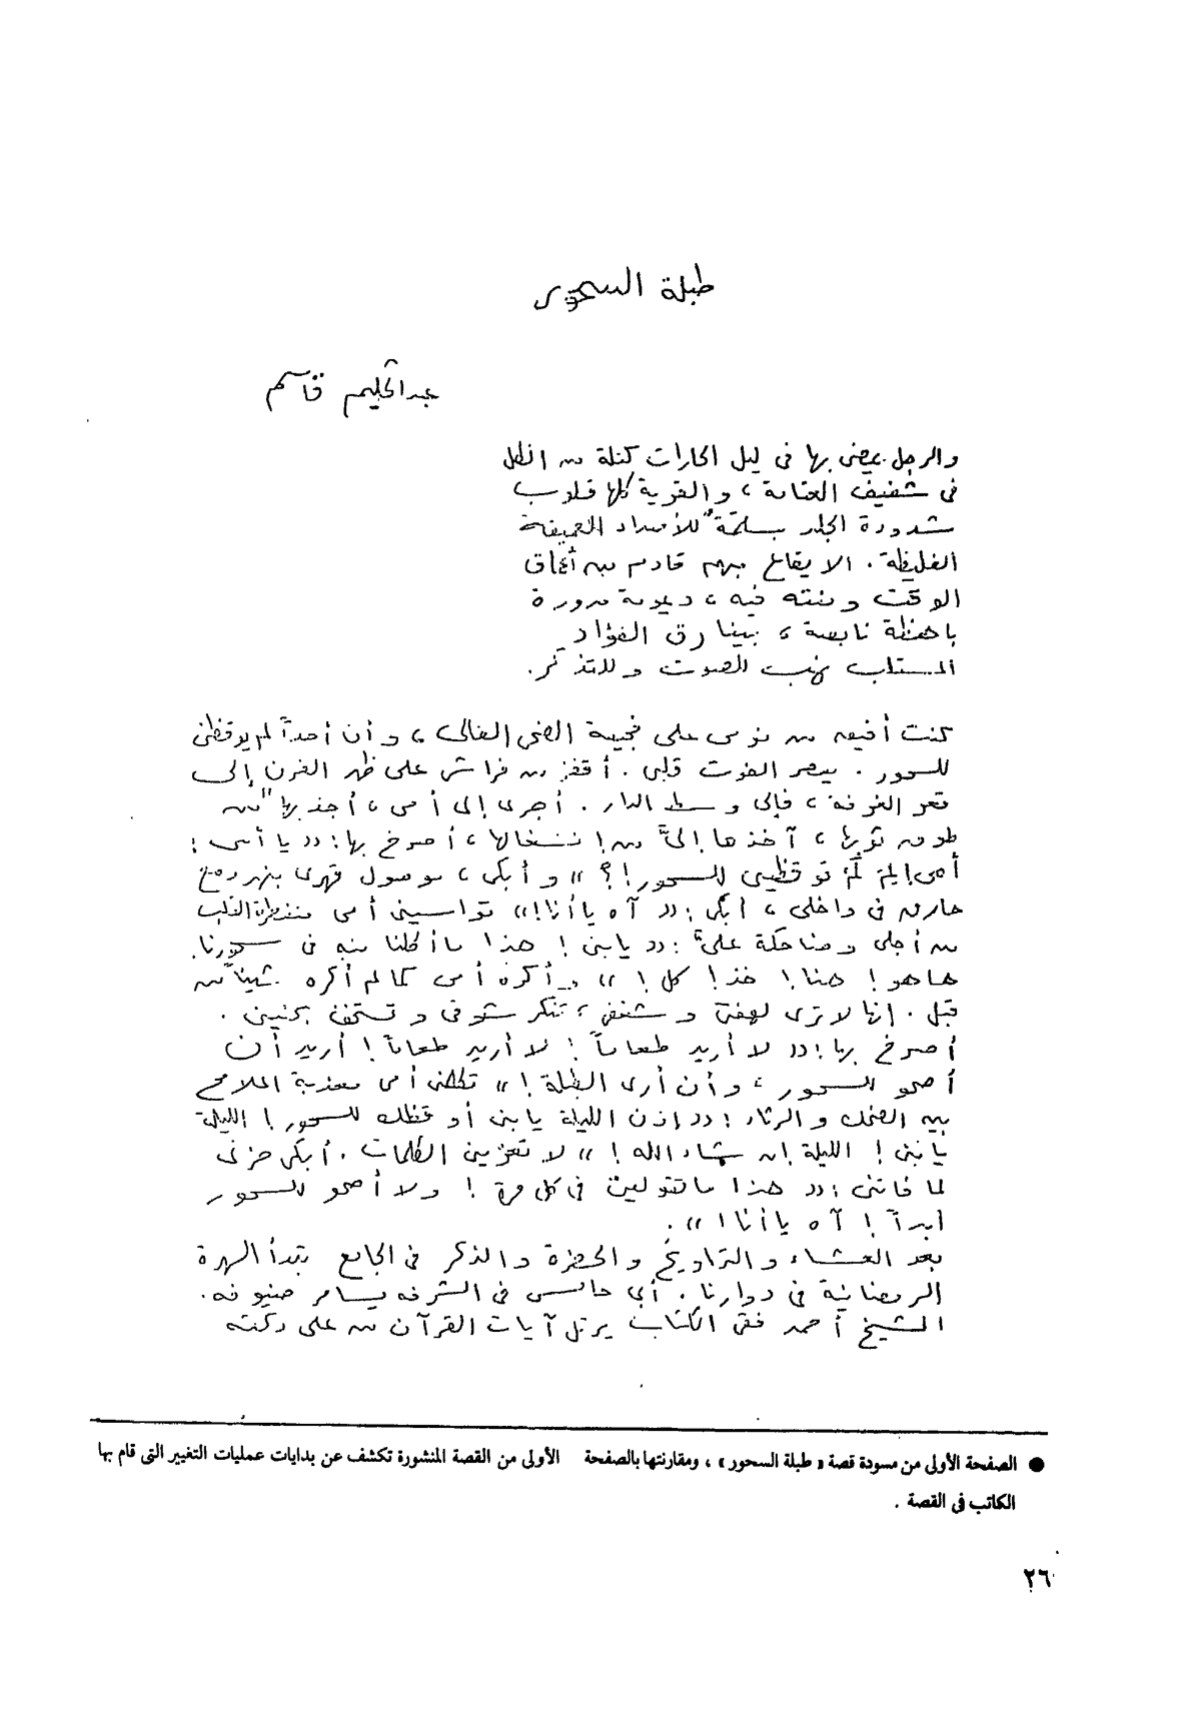 طبلة السحور
عبد الحكيم قاسم
والرجل يمضى بها فى ليل الحارات كتلة من الظل
فى شفيف العتامة، والقرية كلها قلوب
مشدودة الجلد بسلمة للأصداء العميقة
الغليظة. الإيقاع مبهم قادم من أعماق
الوقت ومنته فيه، ديمومة
نابضة، بينا رق الفؤاد
المستلب نهب للصوت وللتذكر.
كنت أفيق من نومى على فجيعة الضحى العالى، وأن أحداً لم يوقظنى
للسحور. يعصر الفوت قلبى. أقفز من فراشى على ظهر الفرن إلى
قعر الغرفة، فإلى وسط الدار. أجرى إلى أمى، أجذبها من
طوق ثوبها، آخذها إلىَّ من انشغالها، أصرخ بها: «يا أمى!
أمى! لِمَ لَمْ توقظينى للسحور!؟» وأبكى، موصول قهرى بنهر دمع
حارق فى داخلى، أبكى: «آه يا أنا!» تواسينى أمى منفطرة القلب
من أجلى وضاحكة علىّ: «يا بنى! هذا ما أكلنا منه فى سحورنا.
ها هو! هنا! خذ! كل!» وأكره أمى كما لم أكره شيئاً من
قبل. إنها لا ترى لهفتى وشغفى، تنكر شوقى وتستخف بحنينى.
أصرخ بها: «لا أريد طعاماً! لا أريد طعاماً! أريد أن
أصحو للسحور، وأن أرى الطبلة!» تكلمنى أمى معذبة الملامح
بين الضحك والرثاء: «إذن الليلة يا بنى أوقظك للسحور! الليلة
يا بنى! الليلة إن شاء الله!» لا تعزينى الكلمات. أبكى حزنى
لما فاتنى: «هذا ما تقولين فى كل مرة! ولا أصحو للسحور
أبداً! آه يا أنا!».
بعد العشاء والتراويح والحضرة والذكر فى الجامع تبدأ السهرة
الرمضانية فى دوارنا. أبى جالس فى الشرفة يسامر ضيوفه.
الشيخ أحمد فقى الكتاب يرتل آيات القرآن من على دكته
● الصفحة الأولى من مسودة قصة «طبلة السحور»، ومقارنتها بالصفحة الأولى من القصة المنشورة تكشف عن بدايات عمليات التغيير التى قام بها
الكاتب فى القصة.
٢٦